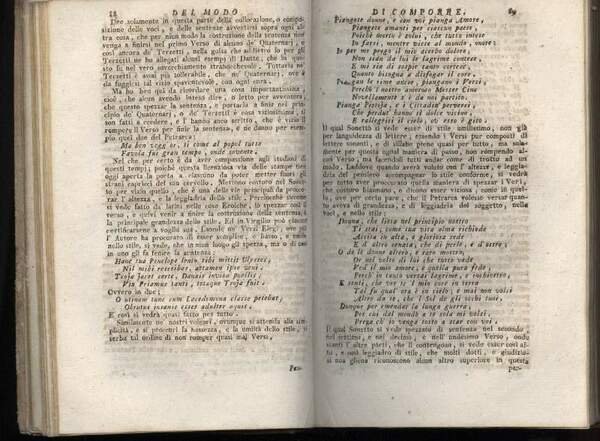 88 DEL MODO
Dee solamente in questa parte della collocazione, o compo-
sizione delle voci, e delle sentenze avvertirsi sopra ogni al-
tra cosa, che per niun modo la costruzione della sentenza non
venga a finirsi nel primo Verso di alcuno de' Quaternarj, e
così ancora de' Terzetti, nella guisa che addietro io per gli
Terzetti ne ho allegati alcuni esempj di Dante, che in que-
sto fu nel vero soverchiamente
Terzetti è assai più tollerabile, che ne' Quaternarj, ove è
da fuggirsi tal vizio
Ma ho ben qui da ricordare una cosa importantissima,
cioè, che alcun avendo inteso dire, o letto per avventura,
che questo spezzar la sentenza, e portarla a finir nel prin-
cipio de' Quaternarj, o de' Terzetti è cosa viziosissima, si
son fatti a credere, e l' hanno anco scritto, che è vizio il
rompere il Verso per finir la sentenza, e ne danno per esem-
pio quei due del Petrarca:
Ma ben veggi or, sì come al popol tutto
Favola fui gran tempo, onde sovente,
Nel che per certo è da aver compassione agli studiosi di
questi tempi, poichè questa licenziosa via delle stampe
oggi aperta la porta a ciascuno da poter mettere fuori gli
strani capricci del suo cervello. Mettono costoro nel Sonet-
to per vizio quello, che è una delle vie principali da procac-
ciar l' altezza, e la leggiadria dello stile. Perciocchè siccome
si vede fatto da' latini nelle cose Eroiche, lo spezzar così il
verso, e quivi venir a finire la costruzione della sentenza, è
la principale grandezza dello stile. Ed in Virgilio può ciascun
certificarsene a voglia sua. Laonde ne' Versi Elegi, ove più
l' Autore ha procurato di esser semplice, e basso, e umile
nello stile, si vede, che in niun luogo gli spezza, ma o di due
in uno gli fa finire la sentenza:
Hanc tua Penelope lento tibi mittit Ulysses,
Nil mihi rescribas, attamen ipse veni;
Troja jacet certe, Danais invisa puellis;
Vix Priamus tanti, totaque Troja fuit.
Ovvero in due:
O utinam tunc cum Lacedæmona classe petebat,
Obrutus insanis esset adulter aquis.
E così si vedrà quasi fatto per tutto.
Similmente ne' nostri volgari, ovunque si attenda alla sim-
plicità, e si procuri la bassezza, e la umiltà dello stile, si
serba tal ordine di non romper quasi mai Verso,
Per-
DI COMPORRE. 89
Piangete donne, e con voi pianga Amore,
Piangete amanti per ciascun paese,
Poichè morto è colui, che tutto intese
In farvi, mentre visse al mondo, onore:
Io per me prego il mio acerbo dolore,
Non sian da lui le lagrime contese,
E mi sia di sospir tanto cortese,
Quanto bisogna a disfogar il core.
Piangan le rime ancor, piangano i Versi,
Perchè 'l nostro amoroso Messer Cino
Novellamente s' è da noi partito.
Pianga Pistoja, e i Cittadin perversi,
Che perdut' hanno sì dolce vicino,
E rallegrisi il cielo, ov' esso è gito.
Il qual Sonetto si vede esser di stile umilissimo, non già
per languidezza di lettere, essendo i Versi pur composti di
lettere sonanti, e di sillabe piene quasi per tutto, ma sola-
mente per questa ugual maniera di passo, non rompendo al-
cun Verso, ma facendoli tutti andar come di trotto ad un
modo. Laddove quando averà voluto con l' altezza, e leggia-
dria del pensiero accompagnar lo stile conforme, si vedrà
per tutto aver procurato questa maniera di spezzar i Versi,
che costoro biasmano, e dicono esser viziosa, come in quel-
lo, ove per certo pare, che il Petrarca volesse versar quan-
to aveva di grandezza, e di leggiadria del soggetto, nelle
voci, e nello stile:
Donna, che lieta col principio nostro
Ti stai, come tua vita alma richiede
Assisa in alta, e gloriosa sede
E d' altro ornata, che di perle, e d' ostro;
O de le donne altero, e raro mostro,
Or nel volto di lui che tutto vede
Vedi il mio amore, e quella pura fede,
Perch' io tanto versai lagrime, e inchiostro,
E senti, che ver te 'l mio core in terra
Tal fu qual ora è in cielo, e mai non volsi
Altro da te, che 'l Sol de gli occhi tuoi.
Dunque per emendar la lunga guerra,
Per cui dal mondo a te sola mi volsi,
Prega ch' io venga tosto a star con voi.
Il qual Sonetto si vede spezzato di sentenze nel secondo,
nel settimo, e nel decimo, e nell' undecimo Verso, onde
stanti l' altre parti, che il contengono, si vede esser così al-
to, e così leggiadro di stile, che molti dotti, e giudizio-
si non gliene riconoscono alcun altro superiore in questa
par-